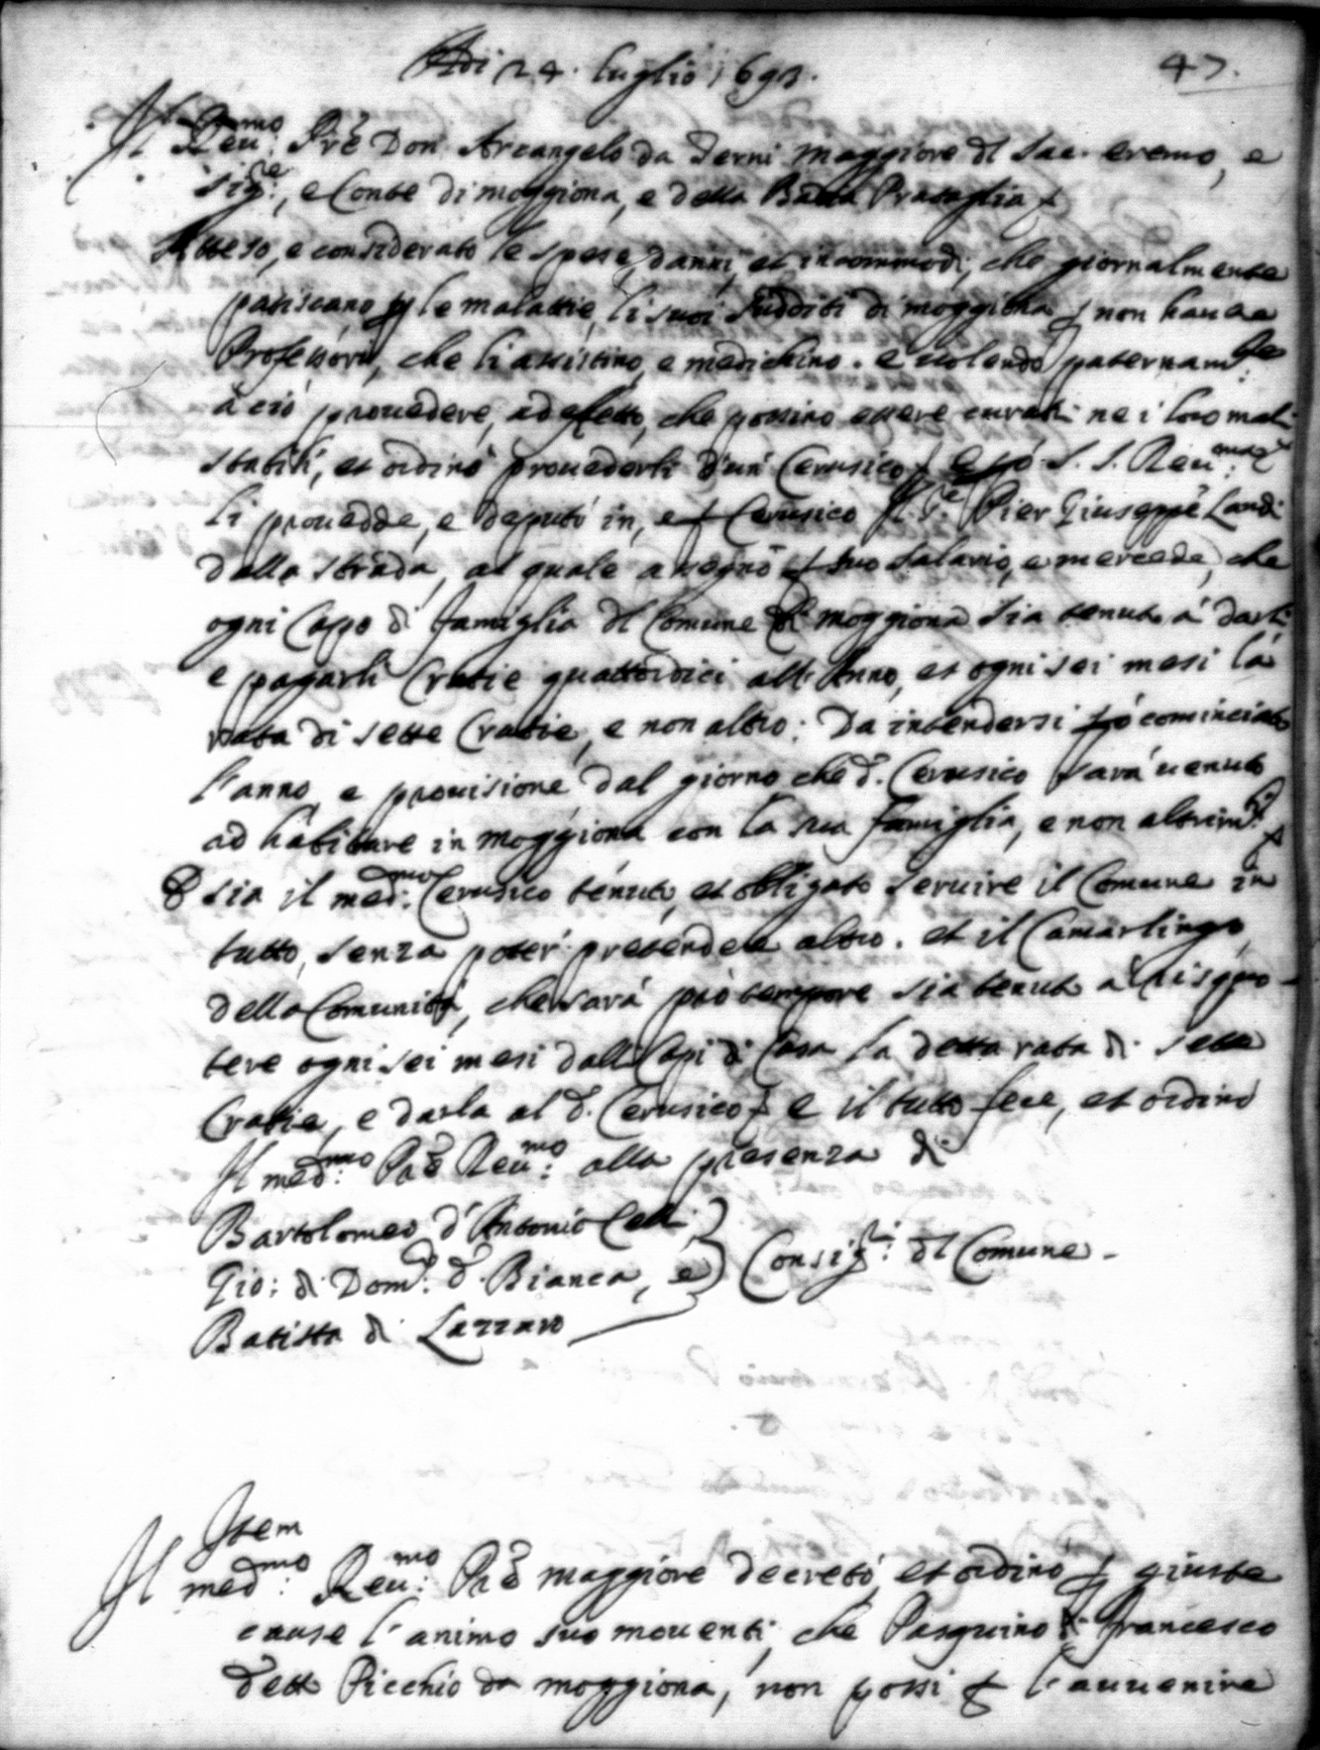 Adi 24. luglio 1693. 47.
Il Reu:mo Pre Don Arcangelo da Terni maggiore dl Sac. eremo, e
Sig:re, e Conte di moggiona, e della Badia Prataglia
Atteso, e considerato le spese, danni, et incommodi, che giornalmente
patiscano p le malattie li suoi sudditi di moggiona p non hauere
Professori, che li assistino, e medichino. e uolendo paternam:te
à ciò prouedere, ad effetto, che possino essere curati ne i loro mali
stabilì, et ordinò prouederli d'un Cerusico, e p ciò S. S. Reu:ma
li prouedde, e deputò in, e p Cerusico il S.re Pier Giuseppe Landi
dalla strada, al quale assegnò p suo salario, e mercede, che
ogni Capo di famiglia dl Comune di moggiona sia tenuto à darli
e pagarli Cratie quattordici all'Anno, et ogni sei mesi la
rata di sette Cratie, e non altro: Da intendersi però cominciato
l'anno, e prouisione dal giorno che d. Cerusico sarà uenuto
ad habitare in moggiona con la sua famiglia, e non altrim:ti
E sia il med:mo Cerusico tenuto, et obligato seruire il Comune in
tutto, senza poter pretendere altro. et il Camarlingo
della Comunità, che sarà prò tempore sia tenuto a risquo-
tere ogni sei mesi dalli Capi di Casa la detta rata di sette
Cratie, e darla al d. Cerusico, e il tutto fece, et ordinò
Il med:mo Pre Reu:mo alla presenza di
Bartolomeo d'Antonio Celli
Gio: di Dom:co d. Bianca, e Consig:ri dl Comune -
Batista di Lazzaro
Item
Il med:mo Reu:mo Pre maggiore decretò, et ordinò p giuste
cause l'animo suo mouenti, che Pasquino di francesco
detto Picchio da moggiona, non possi p l'auuenire